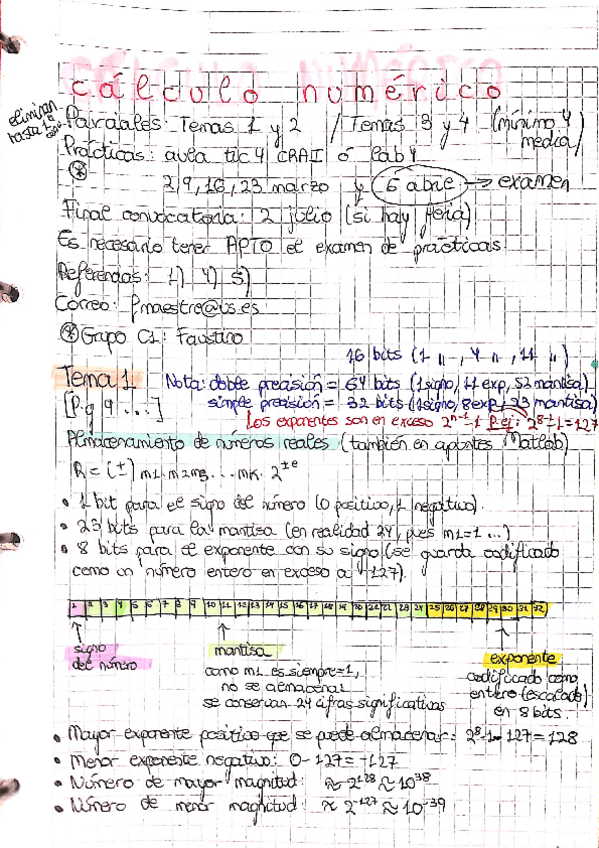 cálculo numérico
eliminan hasta 1ª
Parciales: Temas 1 y 2 / Temas 3 y 4 (mínimo 4 media)
Prácticas: aula tic 4 CRAI ó lab 4
2, 9, 16, 23 marzo y 6 abril → examen
Final convocatoria: 2 julio (si hay feria)
Es necesario tener APTO el examen de prácticas
Referencias: 1) 4) 5)
Correo: fmaestre@us.es
Grupo C1: Faustino
16 bits (1 ", 4 ", 11 ")
Tema 1 Nota: doble precisión = 64 bits (1 signo, 11 exp, 52 mantisa)
[Pg 9 ...] simple precisión = 32 bits (1 signo, 8 exp, 23 mantisa)
Los exponentes son en exceso 2ⁿ⁻¹-1 P.ej: 2⁸⁻¹-1=127
Almacenamiento de números reales (también en apuntes Matlab)
R = (±) m1.m2m3...mk. 2^±e
• 1 bit para el signo del número (0 positivo, 1 negativo).
• 23 bits para la mantisa (en realidad 24, pues m1=1 ...).
• 8 bits para el exponente con su signo (se guarda codificado
como un número entero en exceso a -127).
1 2 3 4 5 6 7 8 9 10 11 12 13 14 15 16 17 18 19 20 21 22 23 24 25 26 27 28 29 30 31 32
signo del número
mantisa
como m1 es siempre=1,
no se almacena
se conservan 24 cifras significativas
exponente
codificado como
entero (escalado)
en 8 bits.
• Mayor exponente positivo que se puede almacenar: 2⁸-1-127=128
• Menor exponente negativo: 0-127=-127
• Número de mayor magnitud: ≈2¹²⁸≈10³⁸
• Número de menor magnitud: ≈2⁻¹²⁷≈10⁻³⁹